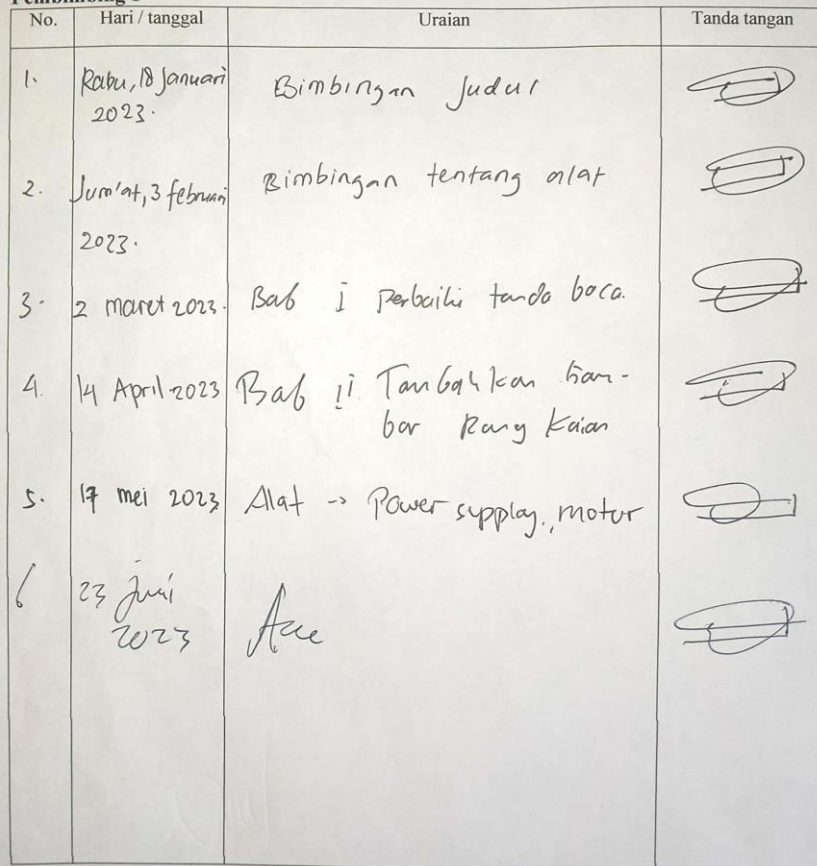 No. Hari / tanggal Uraian Tanda tangan
1. Rabu, 18 Januari Bimbingan Judul
2023.
2. Jum'at, 3 februari Bimbingan tentang alat
2023.
3. 2 maret 2023. Bab I perbaiki tanda baca.
4. 14 April 2023 Bab II Tambahkan Gam-
bar Rangkaian
5. 17 mei 2023 Alat -> Power supplay., motor
6 23 Juni
2023 Acc